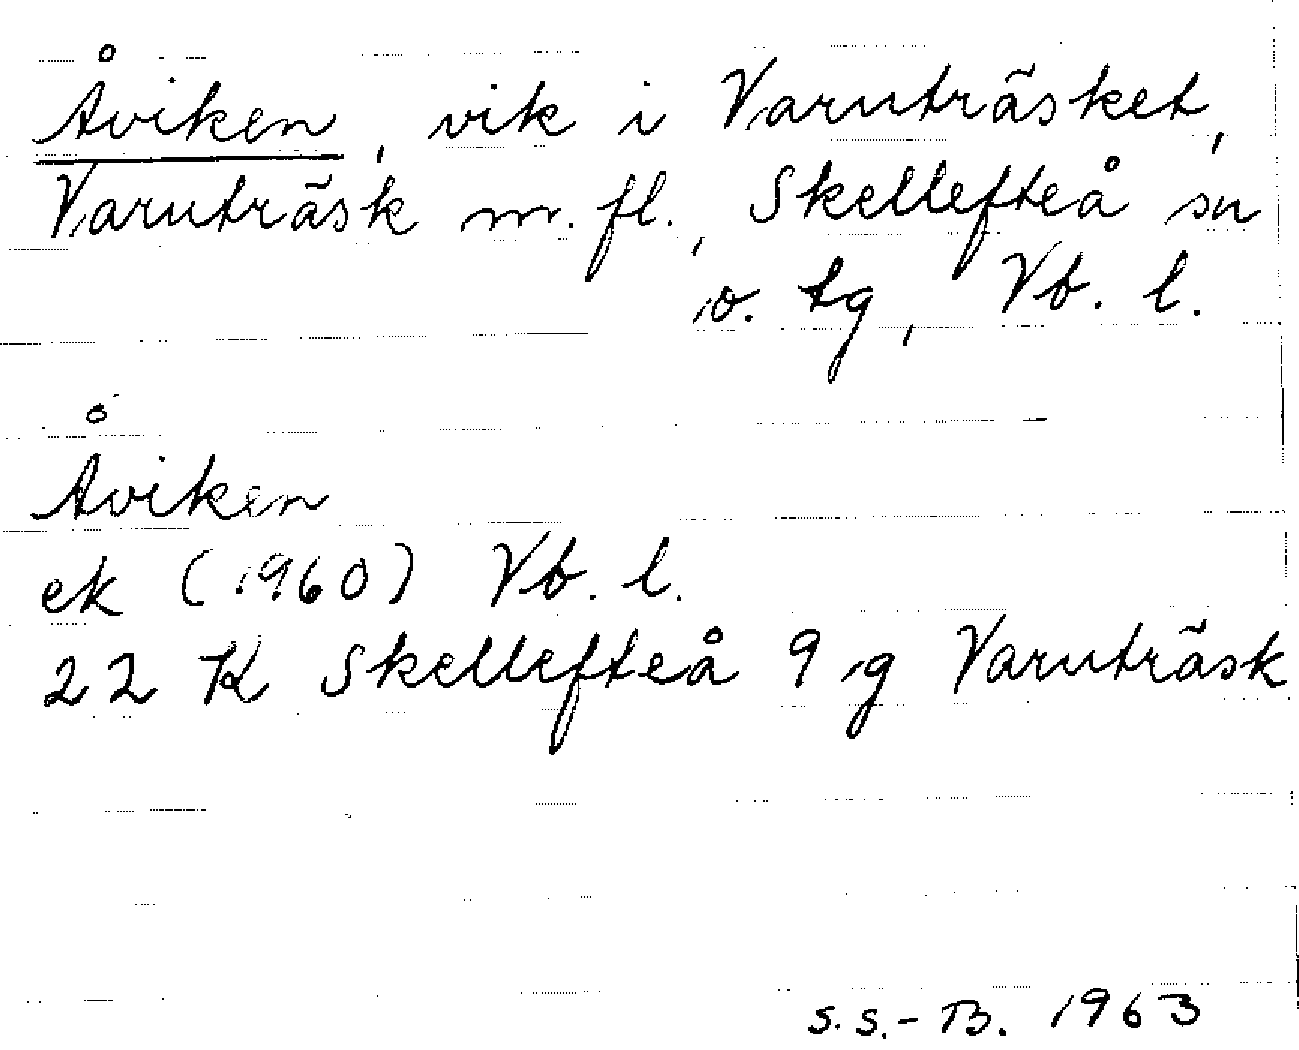 Åviken, vik i Varuträsket,
Varuträsk m. fl., Skellefteå sn
o. tg, Vb. l.
Åviken
ek (1960) Vb. l.
22 K Skellefteå 9 g Varuträsk
S.S.-B. 1963